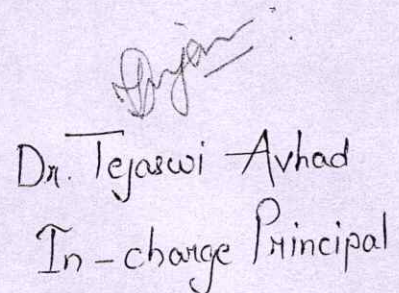 Dr. Tejaswi Avhad
In-charge Principal